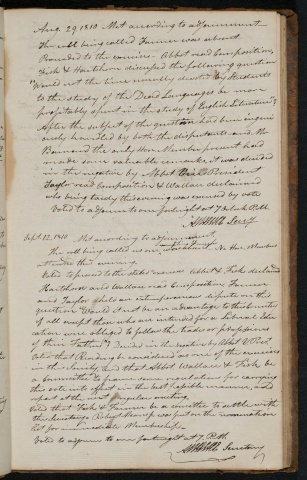 Aug. 29, 1810 Met according to adjournment
The roll being called Farmer was absent
Proceeded to the exercises. Abbot read Composition,
Fisk & Hawthorn discussed the following question
"Would not the time usually devoted by Students
to the study of the Dead Languages be more
profitably spent in the study of English Literature"?
After the subject of the question had been ingeni
ously handled by both the disputants and Mr
Barnard the only Hon. Member present had
made some valuable remarks it was decided
in the negative by Abbot President
Taylor read Composition & Wallace declaimed
who being tardy this evening was excused by vote
Voted to adjourn to one fortnight at 7 o'clock P.M.
Secr'y
Sept. 12, 1810 Met according to adjournment
The roll being called no one was absent No Hon. Members
attended this evening
Voted to proceed to the stated exercises Abbot & Fisk declaimed
Hawthorn and Wallace read Composition Farmer
and Taylor held an extemporaneous dispute on this
question Would it not be an advantage to the Countries
of all except those who are intended for a Liberal Edu
cation were obliged to follow the trades or professions
of their Fathers? Decided in the negative by Abbot
Voted that Reading be considered as one of the exercises
in the Society and that Abbot Wallace & Fisk be
a committee to frame for carrying
this vote into effect in the best possible manner, and
report at the next regular meeting
Voted that Fisk & Farmer be a committee to settle with
the Secretary. was put on the nomination
list for immediate Membership
Voted to adjourn to one fortnight at 7 P.M.
Secretary